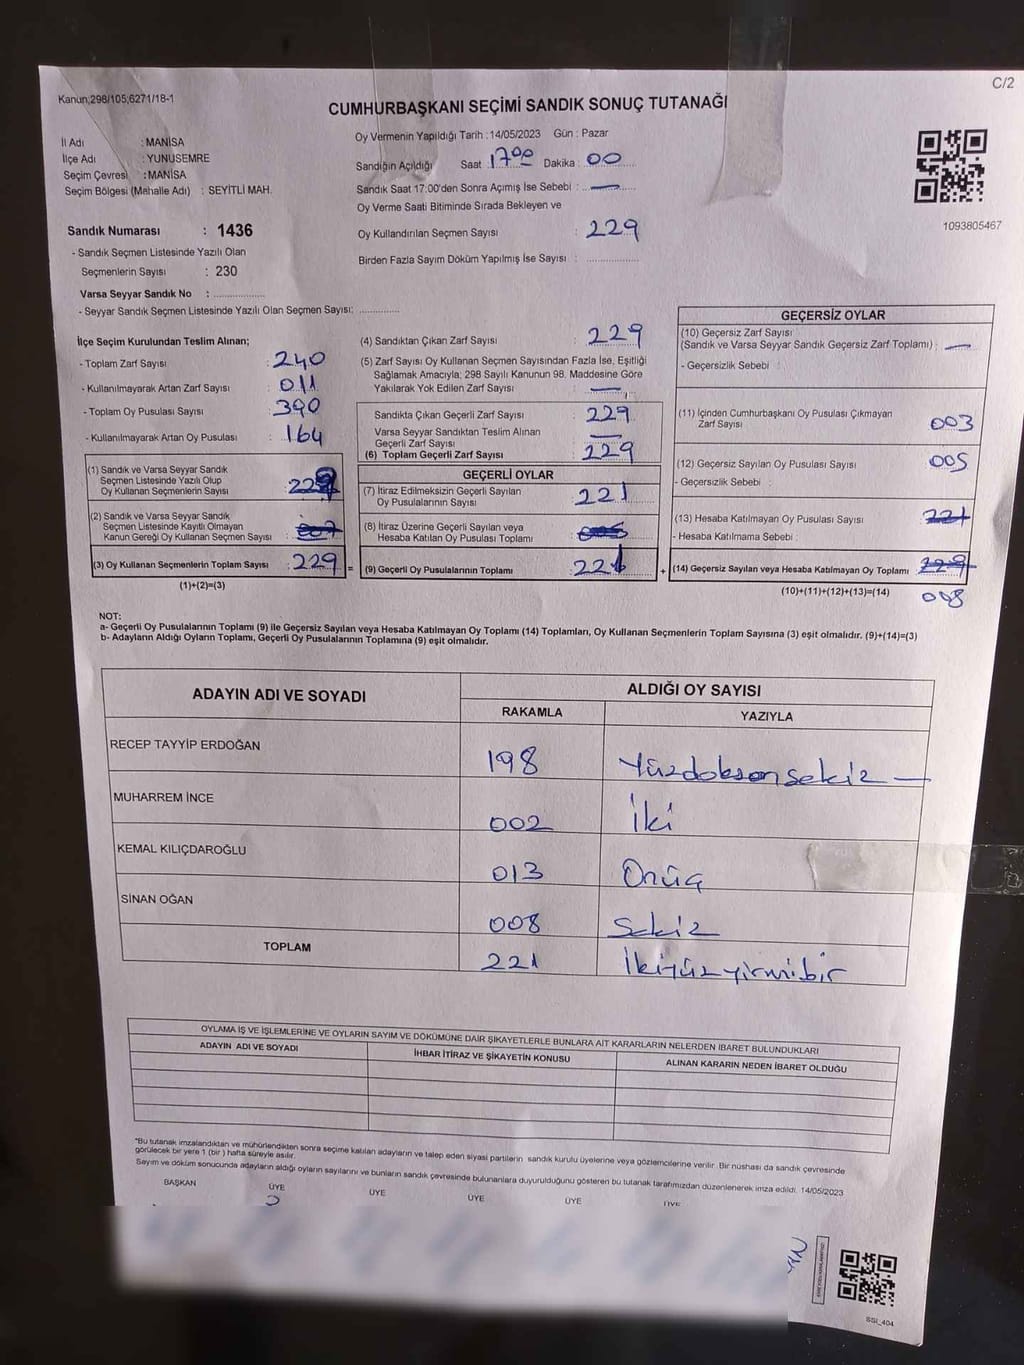 C/2
Kanun;298/105;6271/18-1
CUMHURBAŞKANI SEÇİMİ SANDIK SONUÇ TUTANAĞI
İl Adı : MANİSA
İlçe Adı : YUNUSEMRE
Seçim Çevresi : MANİSA
Seçim Bölgesi (Mahalle Adı) : SEYİTLİ MAH.
Sandık Numarası : 1436
- Sandık Seçmen Listesinde Yazılı Olan
Seçmenlerin Sayısı : 230
Varsa Seyyar Sandık No :
- Seyyar Sandık Seçmen Listesinde Yazılı Olan Seçmen Sayısı:
Oy Vermenin Yapıldığı Tarih : 14/05/2023 Gün : Pazar
Sandığın Açıldığı Saat : 17:00 Dakika : 00
Sandık Saat 17:00'den Sonra Açımış İse Sebebi : —
Oy Verme Saati Bitiminde Sırada Bekleyen ve
Oy Kullandırılan Seçmen Sayısı : 229
Birden Fazla Sayım Döküm Yapılmış İse Sayısı :
1093805467
İlçe Seçim Kurulundan Teslim Alınan;
- Toplam Zarf Sayısı : 240
- Kullanılmayarak Artan Zarf Sayısı : 011
- Toplam Oy Pusulası Sayısı : 390
- Kullanılmayarak Artan Oy Pusulası : 164
(1) Sandık ve Varsa Seyyar Sandık
Seçmen Listesinde Yazılı Olup
Oy Kullanan Seçmenlerin Sayısı : 229
(2) Sandık ve Varsa Seyyar Sandık
Seçmen Listesinde Kayıtlı Olmayan
Kanun Gereği Oy Kullanan Seçmen Sayısı :
(3) Oy Kullanan Seçmenlerin Toplam Sayısı : 229 =
(1)+(2)=(3)
(4) Sandıktan Çıkan Zarf Sayısı : 229
(5) Zarf Sayısı Oy Kullanan Seçmen Sayısından Fazla İse, Eşitliği
Sağlamak Amacıyla; 298 Sayılı Kanunun 98. Maddesine Göre
Yakılarak Yok Edilen Zarf Sayısı : —
Sandıkta Çıkan Geçerli Zarf Sayısı : 229
Varsa Seyyar Sandıktan Teslim Alınan
Geçerli Zarf Sayısı : —
(6) Toplam Geçerli Zarf Sayısı : 229
GEÇERLİ OYLAR
(7) İtiraz Edilmeksizin Geçerli Sayılan
Oy Pusulalarının Sayısı : 221
(8) İtiraz Üzerine Geçerli Sayılan veya
Hesaba Katılan Oy Pusulası Toplamı :
(9) Geçerli Oy Pusulalarının Toplamı : 221 +
GEÇERSİZ OYLAR
(10) Geçersiz Zarf Sayısı
(Sandık ve Varsa Seyyar Sandık Geçersiz Zarf Toplamı) : —
- Geçersizlik Sebebi :
(11) İçinden Cumhurbaşkanı Oy Pusulası Çıkmayan
Zarf Sayısı : 003
(12) Geçersiz Sayılan Oy Pusulası Sayısı : 005
- Geçersizlik Sebebi :
(13) Hesaba Katılmayan Oy Pusulası Sayısı : 221
- Hesaba Katılmama Sebebi :
(14) Geçersiz Sayılan veya Hesaba Katılmayan Oy Toplamı : 229
(10)+(11)+(12)+(13)=(14) 008
NOT:
a- Geçerli Oy Pusulalarının Toplamı (9) ile Geçersiz Sayılan veya Hesaba Katılmayan Oy Toplamı (14) Toplamları, Oy Kullanan Seçmenlerin Toplam Sayısına (3) eşit olmalıdır. (9)+(14)=(3)
b- Adayların Aldığı Oyların Toplamı, Geçerli Oy Pusulalarının Toplamına (9) eşit olmalıdır.
ADAYIN ADI VE SOYADI
ALDIĞI OY SAYISI
RAKAMLA YAZIYLA
RECEP TAYYİP ERDOĞAN 198 Yüzdoksansekiz —
MUHARREM İNCE 002 İki
KEMAL KILIÇDAROĞLU 013 Onüç
SİNAN OĞAN 008 Sekiz
TOPLAM 221 İkiyüzyirmibir
OYLAMA İŞ VE İŞLEMLERİNE VE OYLARIN SAYIM VE DÖKÜMÜNE DAİR ŞİKAYETLERLE BUNLARA AİT KARARLARIN NELERDEN İBARET BULUNDUKLARI
ADAYIN ADI VE SOYADI İHBAR İTİRAZ VE ŞİKAYETİN KONUSU ALINAN KARARIN NEDEN İBARET OLDUĞU
*Bu tutanak imzalandıktan ve mühürlendikten sonra seçime katılan adayların ve talep eden siyasi partilerin sandık kurulu üyelerine veya gözlemcilerine verilir. Bir nüshası da sandık çevresinde
görülecek bir yere 1 (bir) hafta süreyle asılır.
Sayım ve döküm sonucunda adayların aldığı oyların sayılarını ve bunların sandık çevresinde bulunanlara duyurulduğunu gösteren bu tutanak tarafımızdan düzenlenerek imza edildi. 14/05/2023
BAŞKAN ÜYE ÜYE ÜYE ÜYE ÜYE
SSİ_404